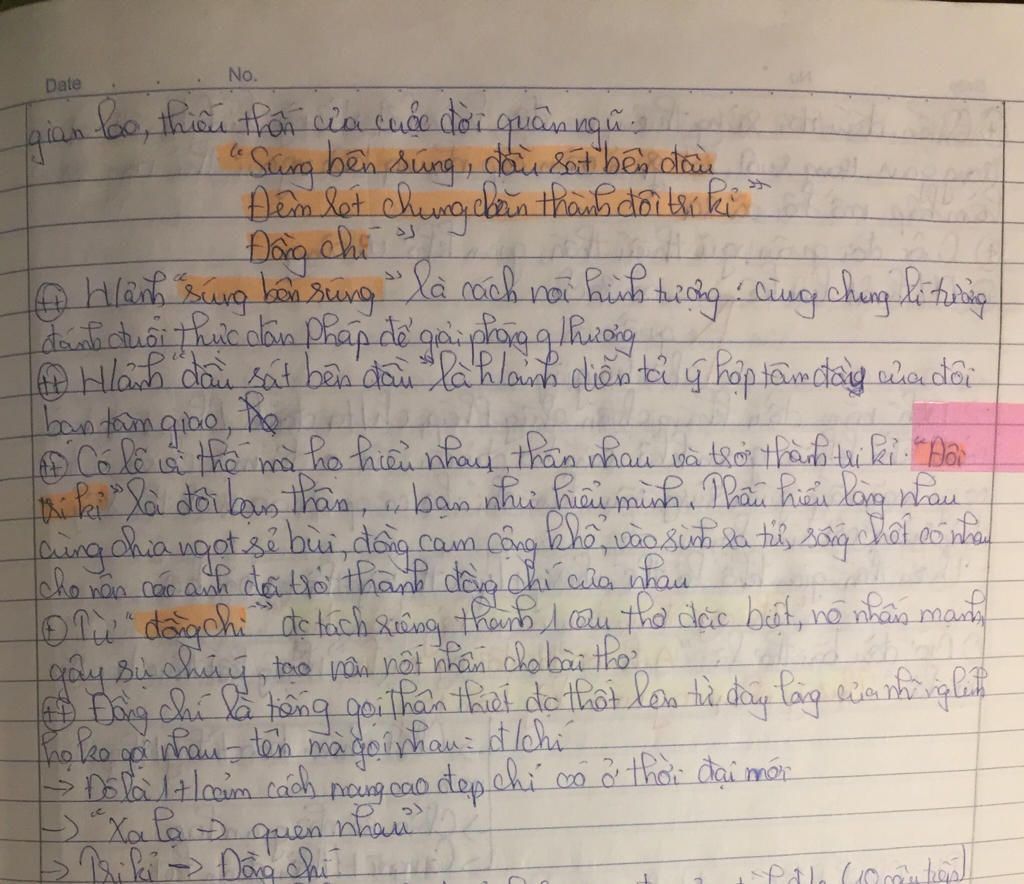 Date No.
gian lao, thiếu thốn của cuộc đời quân ngũ:
"Súng bên súng, đầu sát bên đầu
Đêm rét chung chăn thành đôi tri kỉ"
Đồng chí"
++ H/ảnh "súng bên súng" là cách nói hình tượng: cùng chung lí tưởng
đánh đuổi thực dân Pháp để giải phóng q/hương
++ H/ảnh "đầu sát bên đầu" là h/ảnh diễn tả ý hợp tâm đầu của đôi
bạn tâm giao, họ
++ Có lẽ vì thế mà họ hiểu nhau, thân nhau và trở thành tri kỉ. "Đôi
tri kỉ" là đôi bạn thân, bạn như hiểu mình. Thấu hiểu lòng nhau
cùng chia ngọt sẻ bùi, đồng cam cộng khổ, vào sinh ra tử, sống chết có nhau
cho nên các anh đã trở thành đồng chí của nhau
+ Từ "đồng chí" đc tách riêng thành 1 câu thơ đặc biệt, nó nhấn mạnh,
gây sự chú ý, tạo nên nốt nhấn cho bài thơ
++ Đồng chí là tiếng gọi thân thiết đc thốt lên từ đáy lòng của những lính
họ ko gọi nhau = tên mà gọi nhau = đ/chí
→ Đó là 1 t/cảm cách mạng cao đẹp chỉ có ở thời đại mới
→ "Xa lạ → quen nhau"
→ Tri kỉ → Đồng chí
(10 câu tiếp)